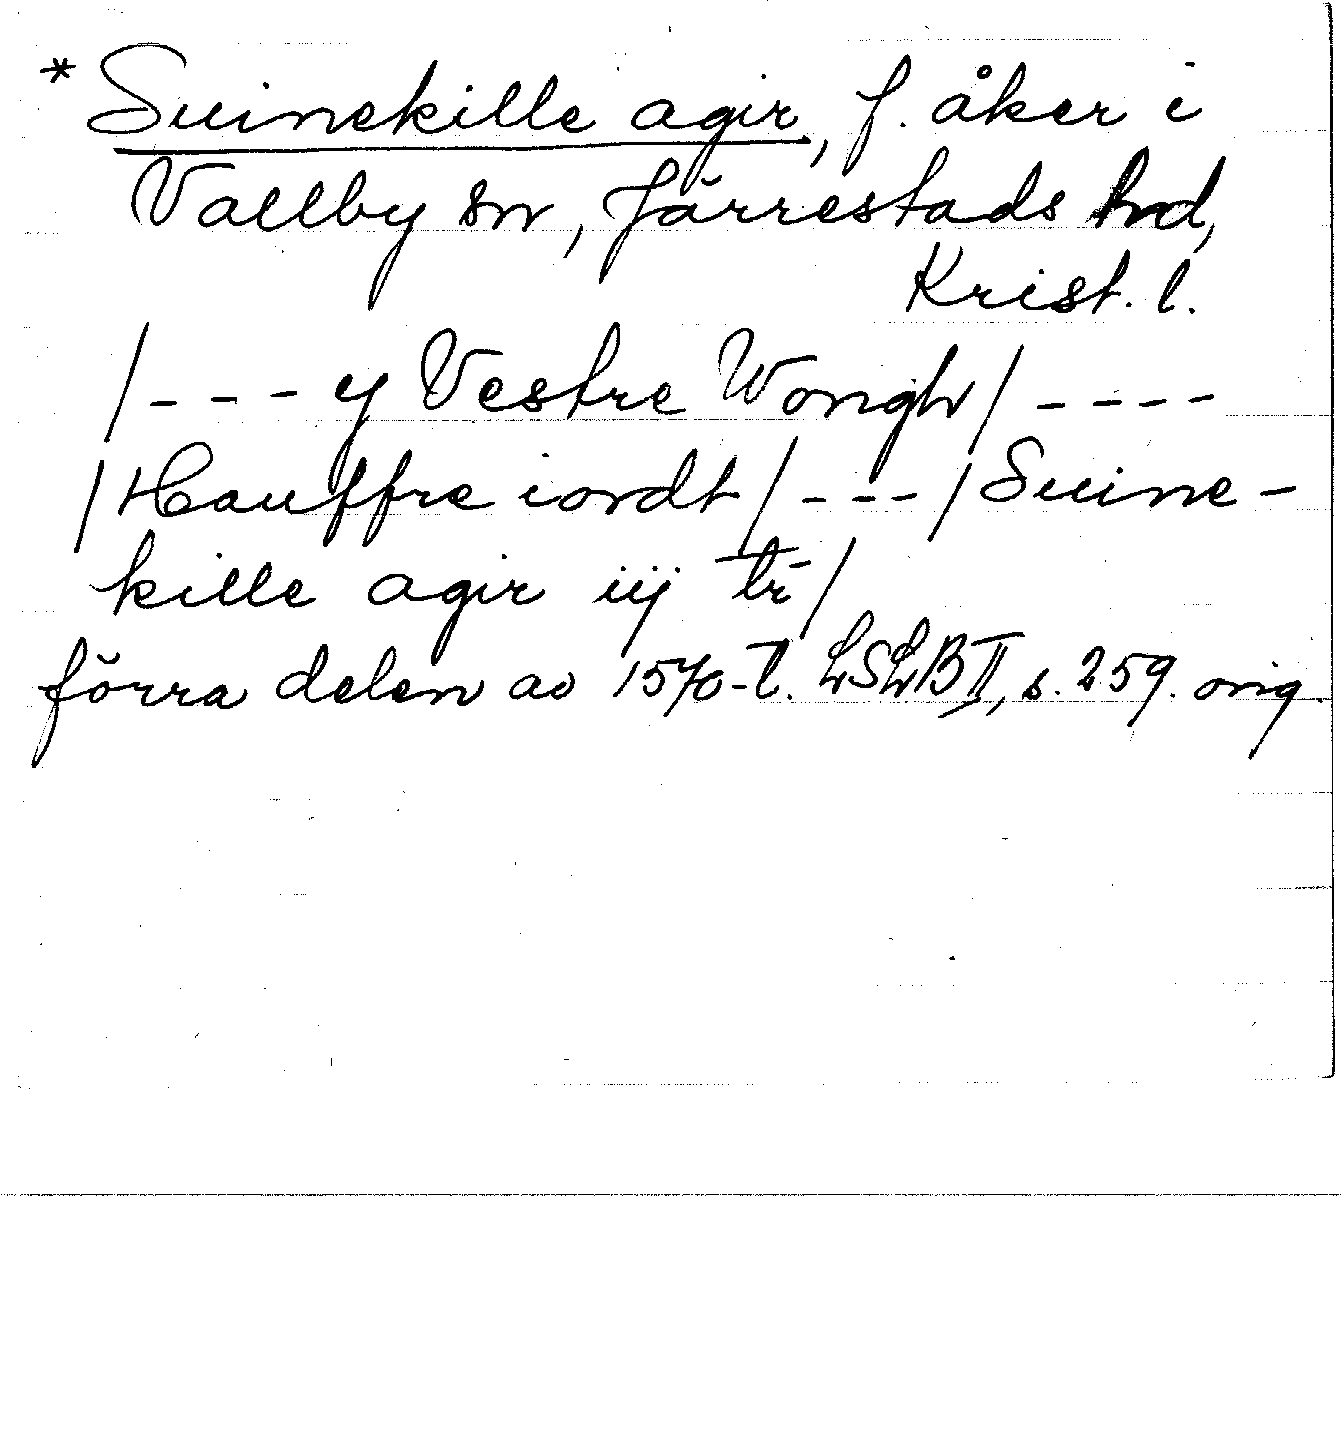 * Suinekille agir, f. åker i
Vallby sn, Järrestads hd,
Krist. l.
/--- y Vestre Wongh/----
/Hauffre iordt/---/Suine-
kille agir iij tr̄/
förra delen av 1570-t. LSLB II, s. 259. orig.